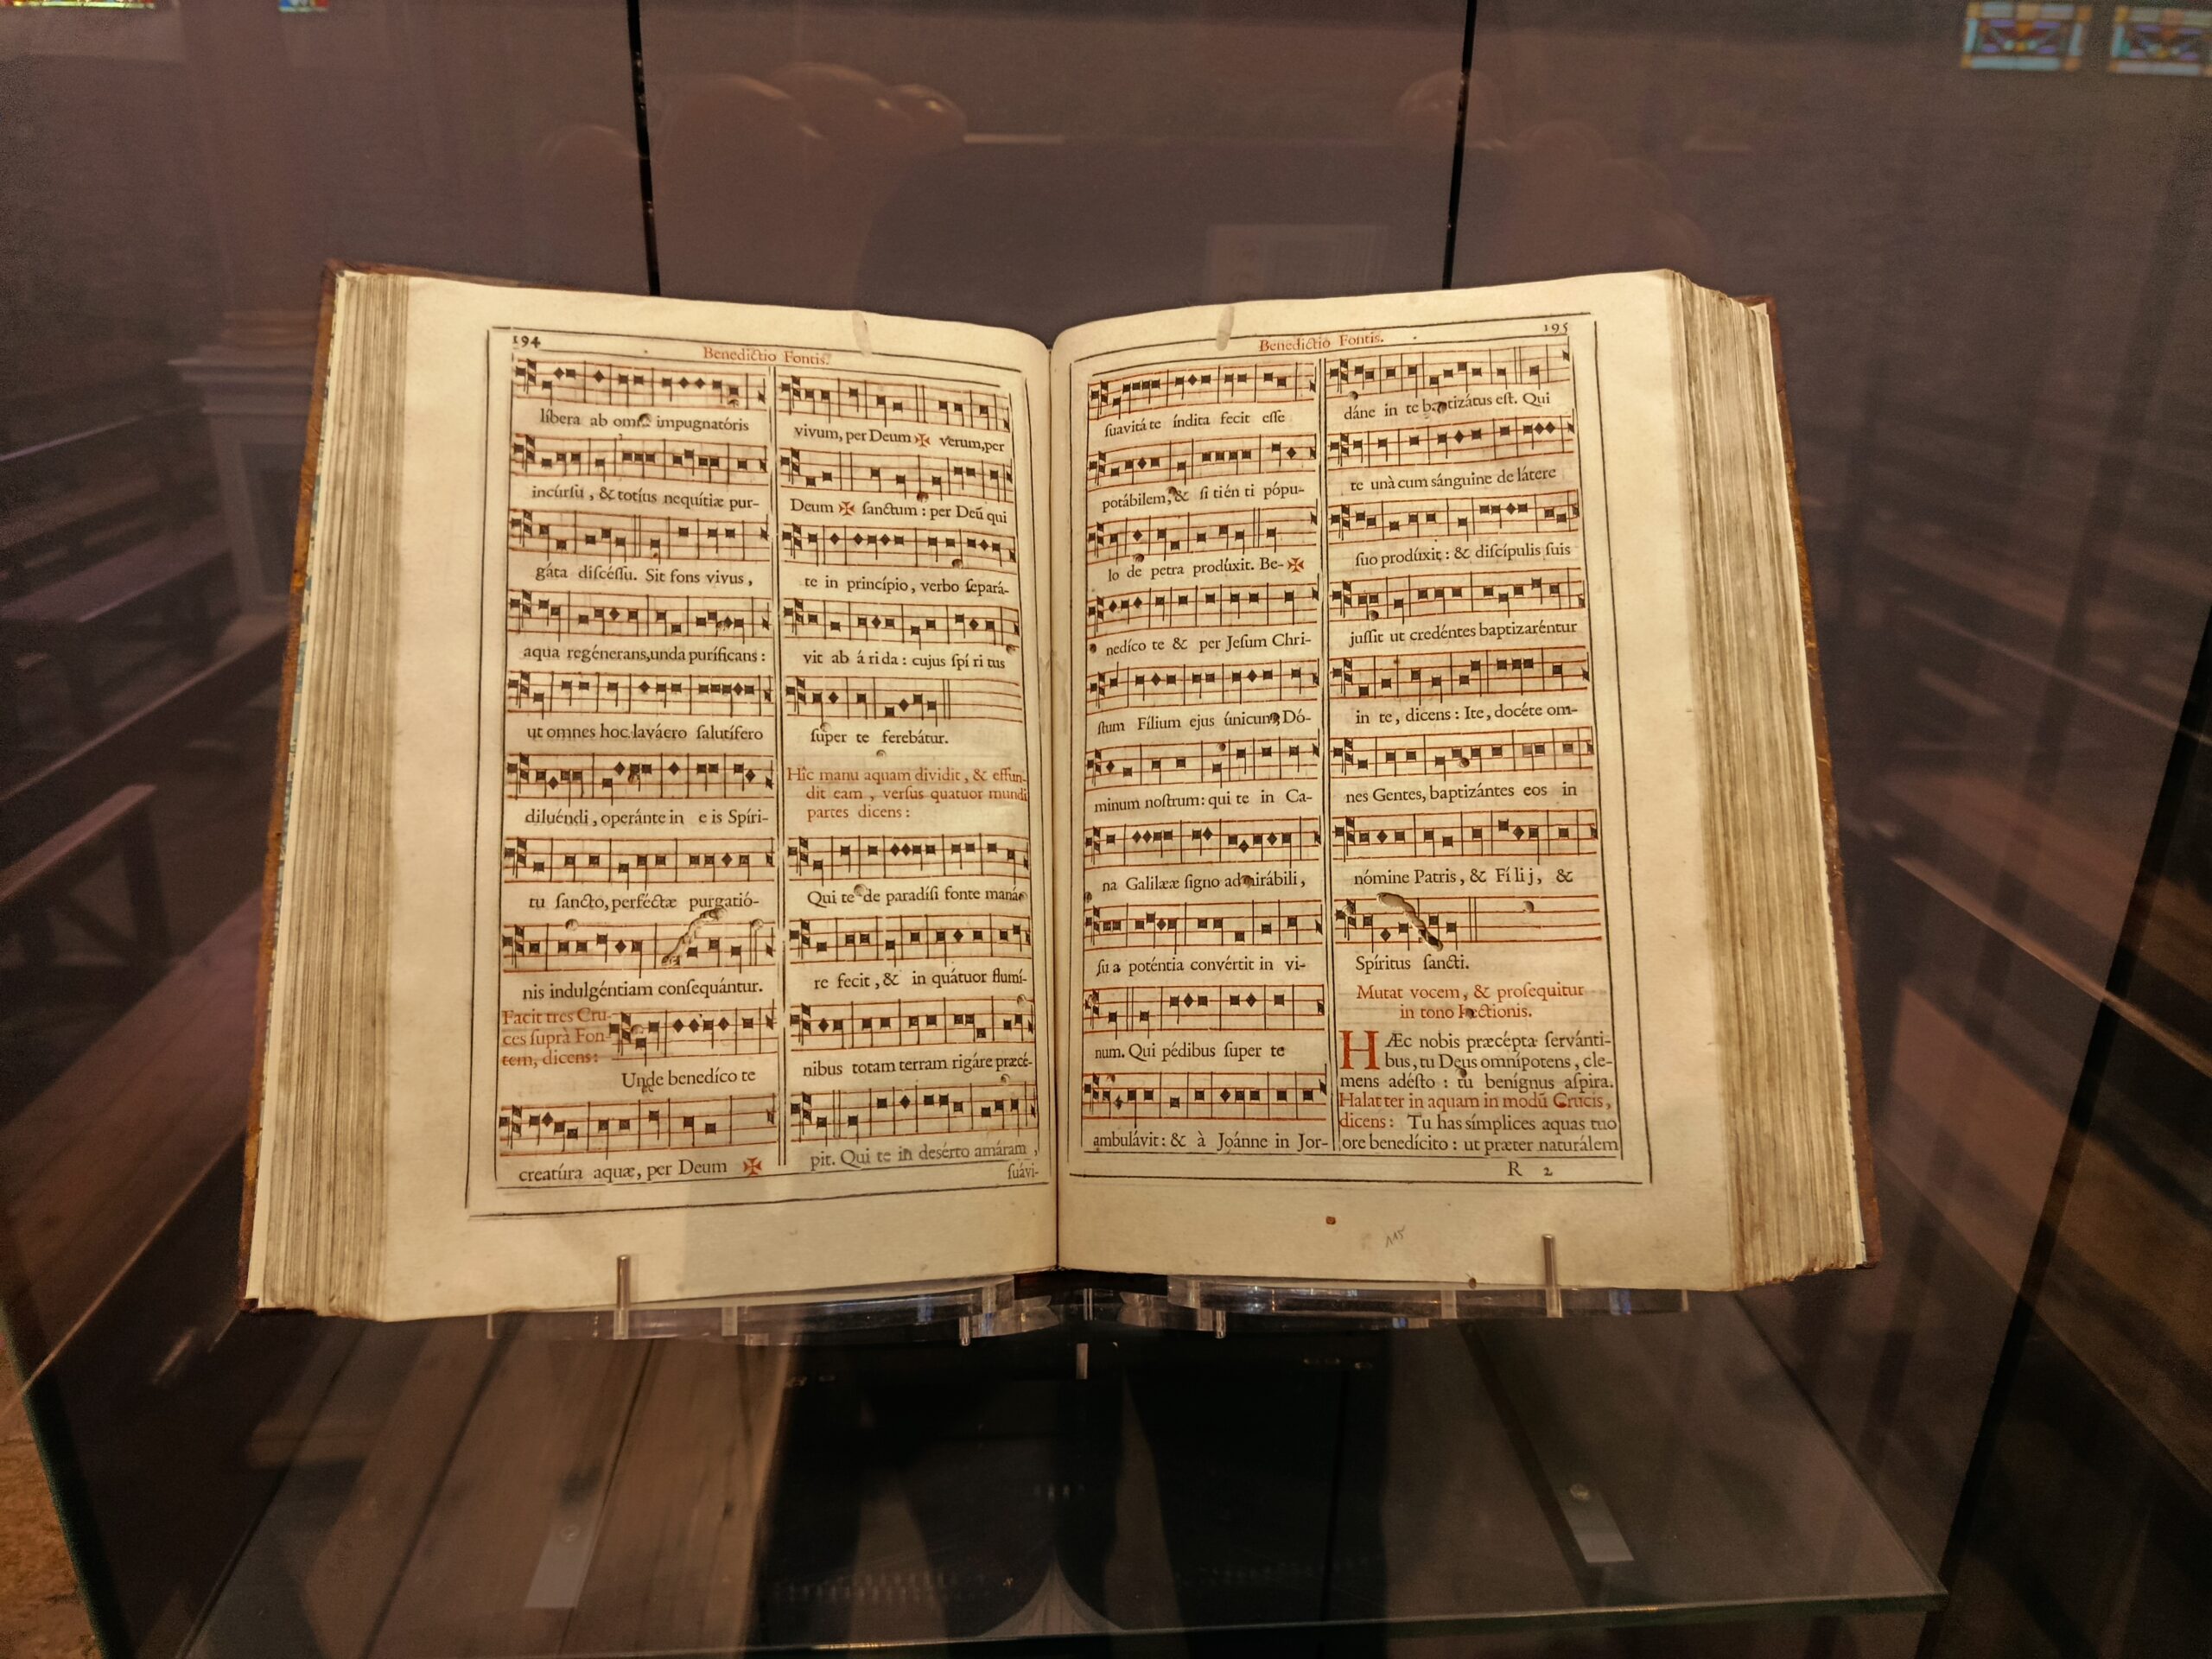 194
Benedictio Fontis.
líbera ab omni impugnatóris
incúrsu, & totíus nequítiæ pur-
gáta discéssu. Sit fons vivus,
aqua regénerans, unda puríficans:
ut omnes hoc lavácro salutífero
diluéndi, operánte in e is Spíri-
tu sancto, perféctæ purgatió-
nis indulgéntiam consequántur.
Facit tres Cru-
ces suprà Fon-
tem, dicens:
Unde benedíco te
creatúra aquæ, per Deum ✠
vivum, per Deum ✠ verum, per
Deum ✠ sanctum: per Deũ qui
te in princípio, verbo separá-
vit ab á ri da: cujus spí ri tus
super te ferebátur.
Hîc manu aquam dividit, & effun-
dit eam, versus quatuor mundi
partes dicens:
Qui te de paradísi fonte maná-
re fecit, & in quátuor flumí-
nibus totam terram rigáre præcé-
pit. Qui te in desérto amáram,
suávi-
Benedictio Fontis.
195
suavitá te índita fecit esse
potábilem, & si tién ti pópu-
lo de petra prodúxit. Be- ✠
nedíco te & per Jesum Chri-
stum Fílium ejus únicum, Dó-
minum nostrum: qui te in Ca-
na Galilææ signo admirábili,
su a poténtia convértit in vi-
num. Qui pédibus super te
ambulávit: & à Joánne in Jor-
dáne in te baptizátus est. Qui
te unà cum sánguine de látere
suo prodúxit: & discípulis suis
jussit ut credéntes baptizaréntur
in te, dicens: Ite, docéte om-
nes Gentes, baptizántes eos in
nómine Patris, & Fí li j, &
Spíritus sancti.
Mutat vocem, & prosequitur
in tono Lectionis.
HÆc nobis præcépta servánti-
bus, tu Deus omnípotens, cle-
mens adésto: tu benígnus aspira.
Halat ter in aquam in modũ Crucis,
dicens: Tu has símplices aquas tuo
ore benedícito: ut præter naturálem
R 2
115